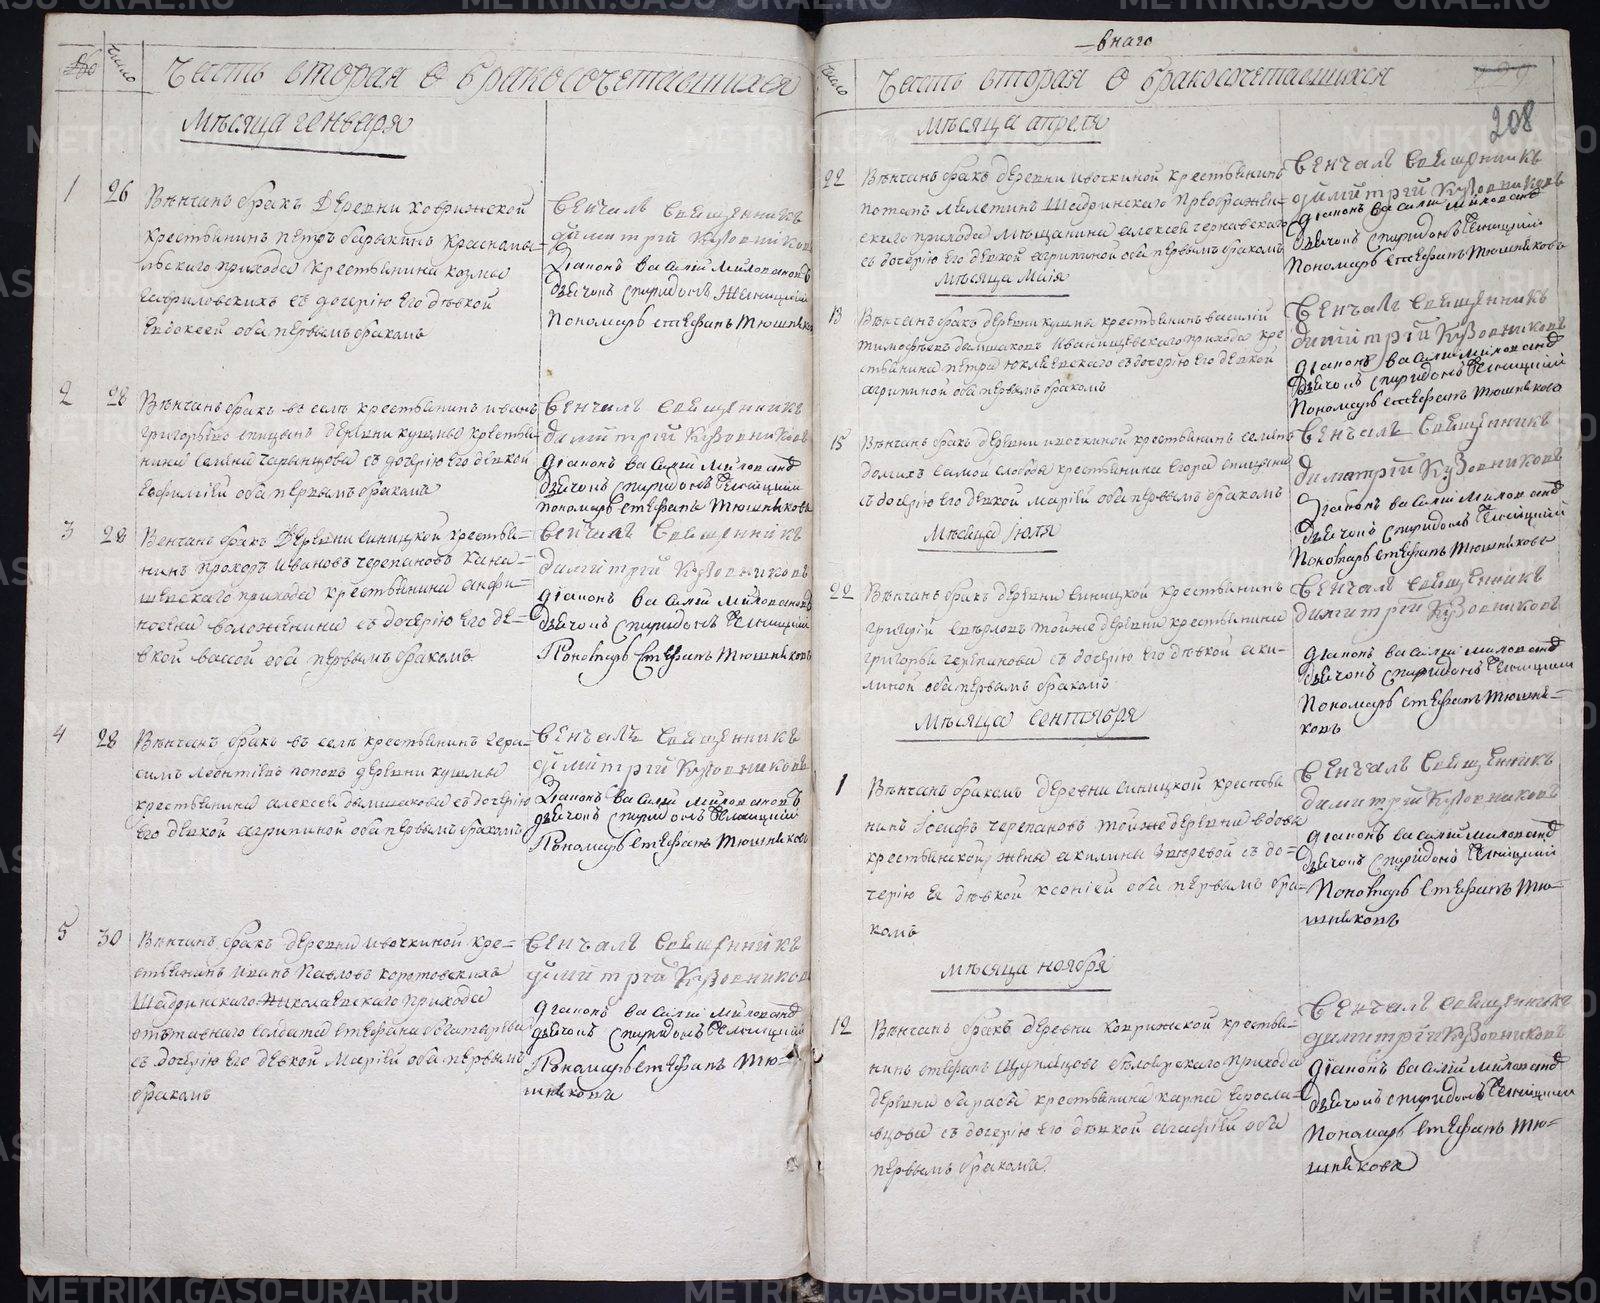 № Число Часть вторая о бракосочетавшихся
Мѣсяца генваря
1 26 Вѣнчанъ бракъ деревни ковриской
крестьянинъ петръ барыкинъ красномы-
льскаго прихода крестьянина козмы
гавриловскихъ съ дочерію его дѣвкой
Евдокеей оба первымъ бракомъ
Венчалъ священникъ
димитрій Кузовников
Діаконъ василій Милованов
дьячокъ спиридонъ
Пономарь стефанъ Тюшняков
2 28 Вѣнчанъ бракъ въ селѣ крестьянинъ иванъ
григорьевъ спицынъ деревни кушмы крестья-
нина семена чарынцова съ дочерію его девкой
евфиміей оба первымъ бракомъ
Венчалъ священникъ
димитрій Кузовников
діаконъ василій Милованов
дьячокъ спиридонъ
пономарь стефанъ Тюшняковъ
3 28 Венчанъ бракъ деревни синицкой крестья-
нинъ прохоръ ивановъ черепановъ кана-
шевскаго прихода крестьянина
съ дочерію его де-
вкой вассой оба первымъ бракомъ
Венчалъ священникъ
димитрій Кузовниковъ
діаконъ василій милованов
дьячокъ спиридонъ
Пономарь Стефанъ Тюшняковъ
4 28 Вѣнчанъ бракъ въ селѣ крестьянинъ гера-
симъ леонтіевъ поповъ деревни кушмы
крестьянина алексея дымшакова съ дочерію
его девкой агрипиной оба первымъ бракомъ
Венчалъ священникъ
димитрій Кузовниковъ
Діаконъ василій милованов
дьячокъ спиридонъ
Пономарь стефанъ Тюшняковъ
5 30 Вѣнчанъ бракъ деревни ивочкиной кре-
стьянинъ иванъ Павловъ коротовскихъ
Шадринскаго николаевскаго прихода
отставнаго солдата стефана богатырева
съ дочерію его девкой Маріей оба первымъ
бракомъ
Венчалъ священникъ
димитрій Кузовников
діаконъ василій милованов
дьячокъ спиридонъ
Пономарь стефанъ Тю-
шняковъ
-внаго
Число Часть вторая о бракосочетавшихся
208
Мѣсяца апреля
22 Вѣнчанъ бракъ деревни ивочкиной крестьянинъ
потапъ милетинъ Шадринскаго преображен-
скаго прихода мѣщанина алексея чернавскаго
съ дочерію его девкой агрипиной оба первымъ бракомъ
Венчалъ священникъ
димитрій Кузовниковъ
діаконъ василій милованов
дьячокъ спиридонъ
Пономарь стефанъ Тюшняковъ
Мѣсяца Маія
13 Вѣнчанъ бракъ деревни кушмы крестьянинъ василій
тимофѣевъ дымшаковъ иванищевскаго прихода кре-
стьянина петра юклаевскаго съ дочерію его девкой
агрипиной оба первымъ бракомъ
Венчалъ священникъ
димитрій Кузовниковъ
діаконъ василій милованов
дьячокъ спиридонъ
Пономарь стефанъ Тюшняковъ
15 Вѣнчанъ бракъ деревни ивочкиной крестьянинъ семенъ
самой слободы крестьянина Егора спицына
съ дочерію его девкой маріей оба первымъ бракомъ
Венчалъ священникъ
димитрій Кузовниковъ
Діаконъ василій Милованов
дьячокъ спиридонъ
Пономарь стефанъ Тюшняковъ
Мѣсяца Іюля
22 Вѣнчанъ бракъ деревни синицкой крестьянинъ
григорій тойже деревни крестьянина
григорья черепанова съ дочерію его дѣвкой аки-
линой оба первымъ бракомъ
Венчалъ священникъ
димитрій Кузовниковъ
діаконъ василій милованов
дьячокъ спиридонъ
Пономарь стефанъ тюшня-
ковъ
Мѣсяца сентября
1 Вѣнчанъ бракомъ деревни синицкой крестья
нинъ Іосифъ черепановъ тойже деревни вдовы
крестьянской жены акилины съ до-
черію ея дѣвкой ксеніей оба первымъ бра-
комъ
Венчалъ священникъ
димитрій Кузовниковъ
діаконъ василій милованов
дьячокъ спиридонъ
Пономарь стефанъ Тю-
шняковъ
мѣсяца ноября
12 Вѣнчанъ бракъ деревни ковриской крестья-
нинъ стефанъ щупленцовъ бѣлоярскаго прихода
деревни крестьянина карпа яросла-
вцова съ дочерію его дѣвкой агафіей оба
первымъ бракомъ
Венчалъ священникъ
димитрій Кузовниковъ
діаконъ василій милованов
дьячокъ спиридонъ
Пономарь стефанъ тю-
шняковъ
METRIKI.GASO-URAL.RU